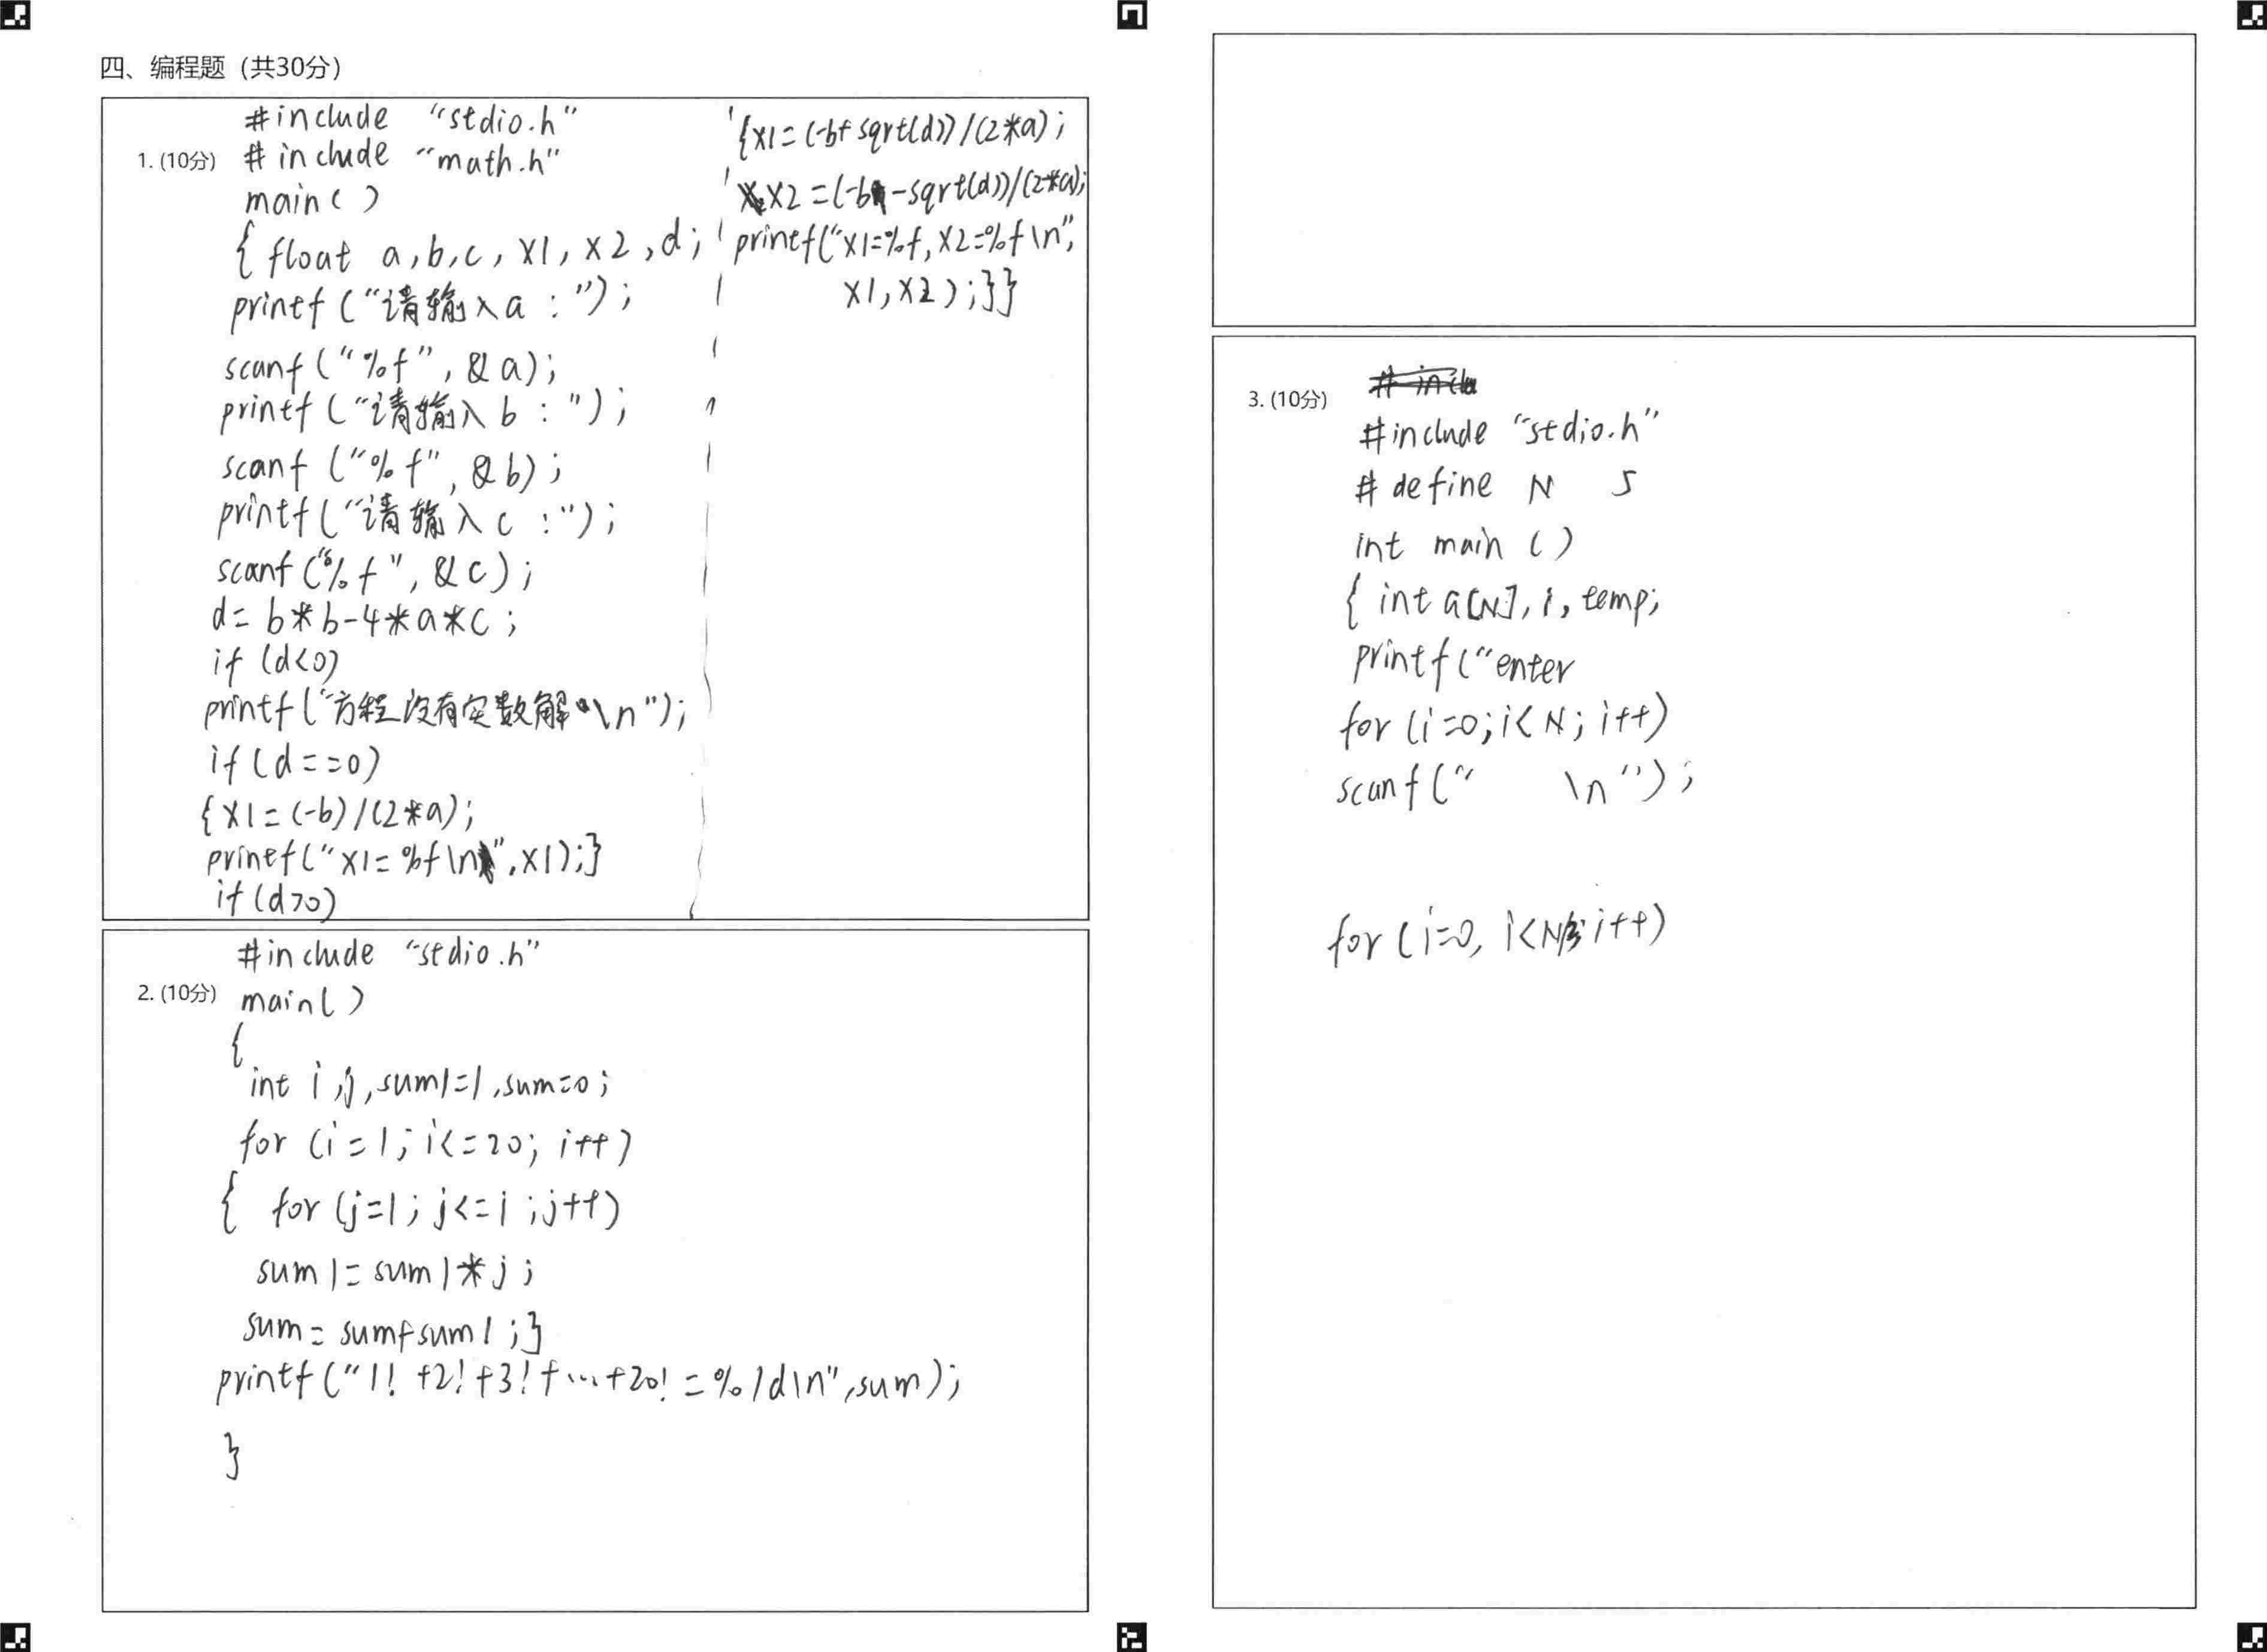 四、编程题（共30分）
1. (10分)
#include "stdio.h"
#include "math.h"
main( )
{ float a,b,c, x1, x2, d;
printf ("请输入a : ");
scanf ("%f", &a);
printf ("请输入b : ");
scanf ("%f", &b);
printf ("请输入c :");
scanf ("%f", &c);
d= b*b-4*a*c ;
if (d<0)
printf ("方程没有实数解\n");
if (d==0)
{x1=(-b)/(2*a);
printf("x1=%f\n",x1);}
if (d>0)
{x1=(-b+sqrt(d))/(2*a);
x2=(-b-sqrt(d))/(2*a);
printf("x1=%f,x2=%f\n",
x1,x2);}}
2. (10分)
#include "stdio.h"
main( )
{
int i,j,sum1=1,sum=0;
for (i=1; i<=20; i++)
{ for (j=1; j<=i ;j++)
sum1=sum1*j;
sum=sum+sum1;}
printf ("1! +2!+3!+…+20!=%ld\n",sum);
}
3. (10分)
#include "stdio.h"
#define N 5
int main ( )
{ int a[N], i, temp;
printf ("enter
for (i=0;i<N; i++)
scanf (" \n");
for (i=0, i<N i++)